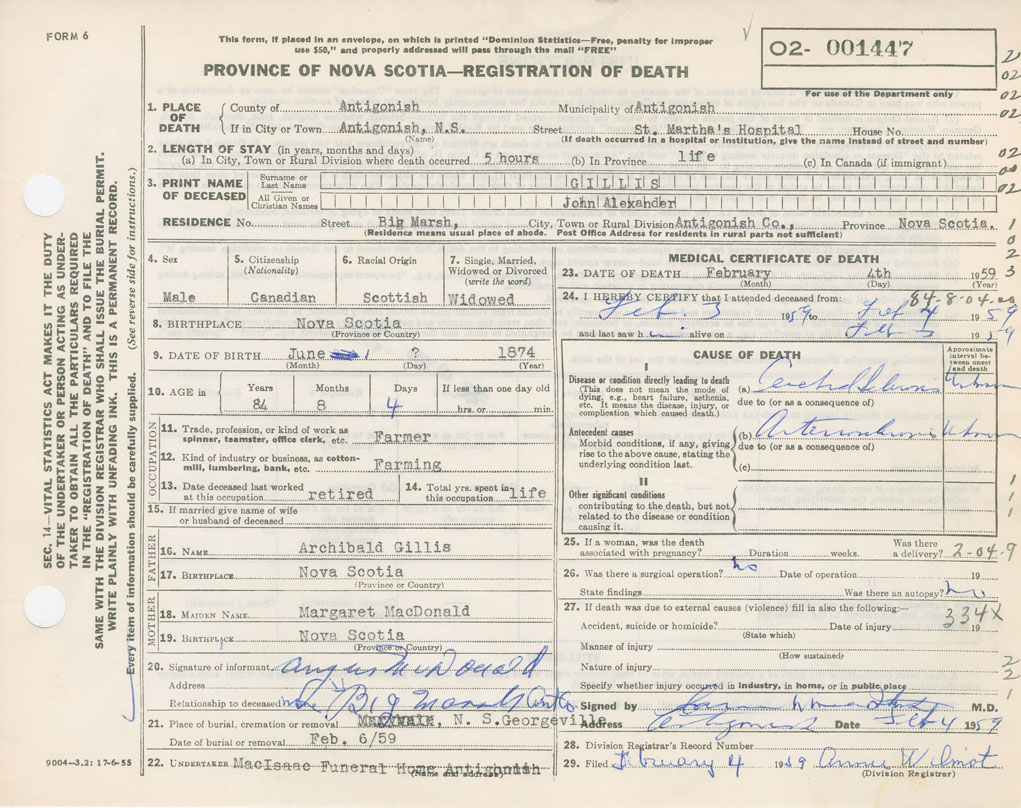 FORM 6
This form, if placed in an envelope, on which is printed "Dominion Statistics—Free, penalty for improper
use $50," and properly addressed will pass through the mail "FREE"
PROVINCE OF NOVA SCOTIA—REGISTRATION OF DEATH
O2- 001447
For use of the Department only
1. PLACE OF DEATH
County of Antigonish Municipality of Antigonish
If in City or Town Antigonish, N.S. Street St. Martha's Hospital House No.
(Name) (If death occurred in a hospital or institution, give the name instead of street and number)
2. LENGTH OF STAY (in years, months and days)
(a) In City, Town or Rural Division where death occurred 5 hours (b) In Province life (c) In Canada (if immigrant)
3. PRINT NAME OF DECEASED
Surname or Last Name GILLIS
All Given or Christian Names John Alexander
RESIDENCE No. Street Big Marsh, City, Town or Rural Division Antigonish Co., Province Nova Scotia.
(Residence means usual place of abode. Post Office Address for residents in rural parts not sufficient)
4. Sex
Male
5. Citizenship
(Nationality)
Canadian
6. Racial Origin
Scottish
7. Single, Married,
Widowed or Divorced
(write the word)
Widowed
8. BIRTHPLACE Nova Scotia
(Province or Country)
9. DATE OF BIRTH June 1 ? 1874
(Month) (Day) (Year)
10. AGE in
Years Months Days If less than one day old
84 8 4 hrs. or min.
OCCUPATION
11. Trade, profession, or kind of work as
spinner, teamster, office clerk, etc. Farmer
12. Kind of industry or business, as cotton-
mill, lumbering, bank, etc. Farming
13. Date deceased last worked
at this occupation retired
14. Total yrs. spent in
this occupation life
15. If married give name of wife
or husband of deceased
FATHER
16. NAME Archibald Gillis
17. BIRTHPLACE Nova Scotia
(Province or Country)
MOTHER
18. MAIDEN NAME Margaret MacDonald
19. BIRTHPLACE Nova Scotia
(Province or Country)
20. Signature of informant Angus McDonald
Address
Relationship to deceased none Big Marsh Ant Co
21. Place of burial, cremation or removal Maryvale, N. S. Georgeville
Date of burial or removal Feb. 6/59
22. UNDERTAKER MacIsaac Funeral Home Antigonish
(Name and address)
MEDICAL CERTIFICATE OF DEATH
23. DATE OF DEATH February 4th 1959
(Month) (Day) (Year)
84-8-04-
24. I HEREBY CERTIFY that I attended deceased from:
Feb. 3 1959 to Feb 4 1959
and last saw h im alive on Feb 3 1959
CAUSE OF DEATH
Approximate interval between onset and death
I
Disease or condition directly leading to death
(This does not mean the mode of
dying, e.g., heart failure, asthenia,
etc. It means the disease, injury, or
complication which caused death.)
(a) Unknown
due to (or as a consequence of)
Antecedent causes
Morbid conditions, if any, giving
rise to the above cause, stating the
underlying condition last.
(b) Arteriosclerosis Unknown
due to (or as a consequence of)
(c)
II
Other significant conditions
contributing to the death, but not
related to the disease or condition
causing it.
25. If a woman, was the death
associated with pregnancy? Duration weeks. Was there
a delivery? 2-04-9
26. Was there a surgical operation? no Date of operation 19
State findings Was there an autopsy? no
27. If death was due to external causes (violence) fill in also the following:—
334X
Accident, suicide or homicide? Date of injury 19
(State which)
Manner of injury
(How sustained)
Nature of injury
Specify whether injury occurred in industry, in home, or in public place
Signed by M.D.
Address Antigonish Date Feb 4 1959
28. Division Registrar's Record Number
29. Filed February 4 1959 Annie Wilmot
(Division Registrar)
SEC. 14—VITAL STATISTICS ACT MAKES IT THE DUTY
OF THE UNDERTAKER OR PERSON ACTING AS UNDER-
TAKER TO OBTAIN ALL THE PARTICULARS REQUIRED
IN THE "REGISTRATION OF DEATH" AND TO FILE THE
SAME WITH THE DIVISION REGISTRAR WHO SHALL ISSUE THE BURIAL PERMIT.
WRITE PLAINLY WITH UNFADING INK. THIS IS A PERMANENT RECORD.
Every item of information should be carefully supplied. (See reverse side for instructions.)
9004—3.2: 17-6-55
2
02
02
02
02
00
02
1
0
2
3
1
1
1
2
2
1